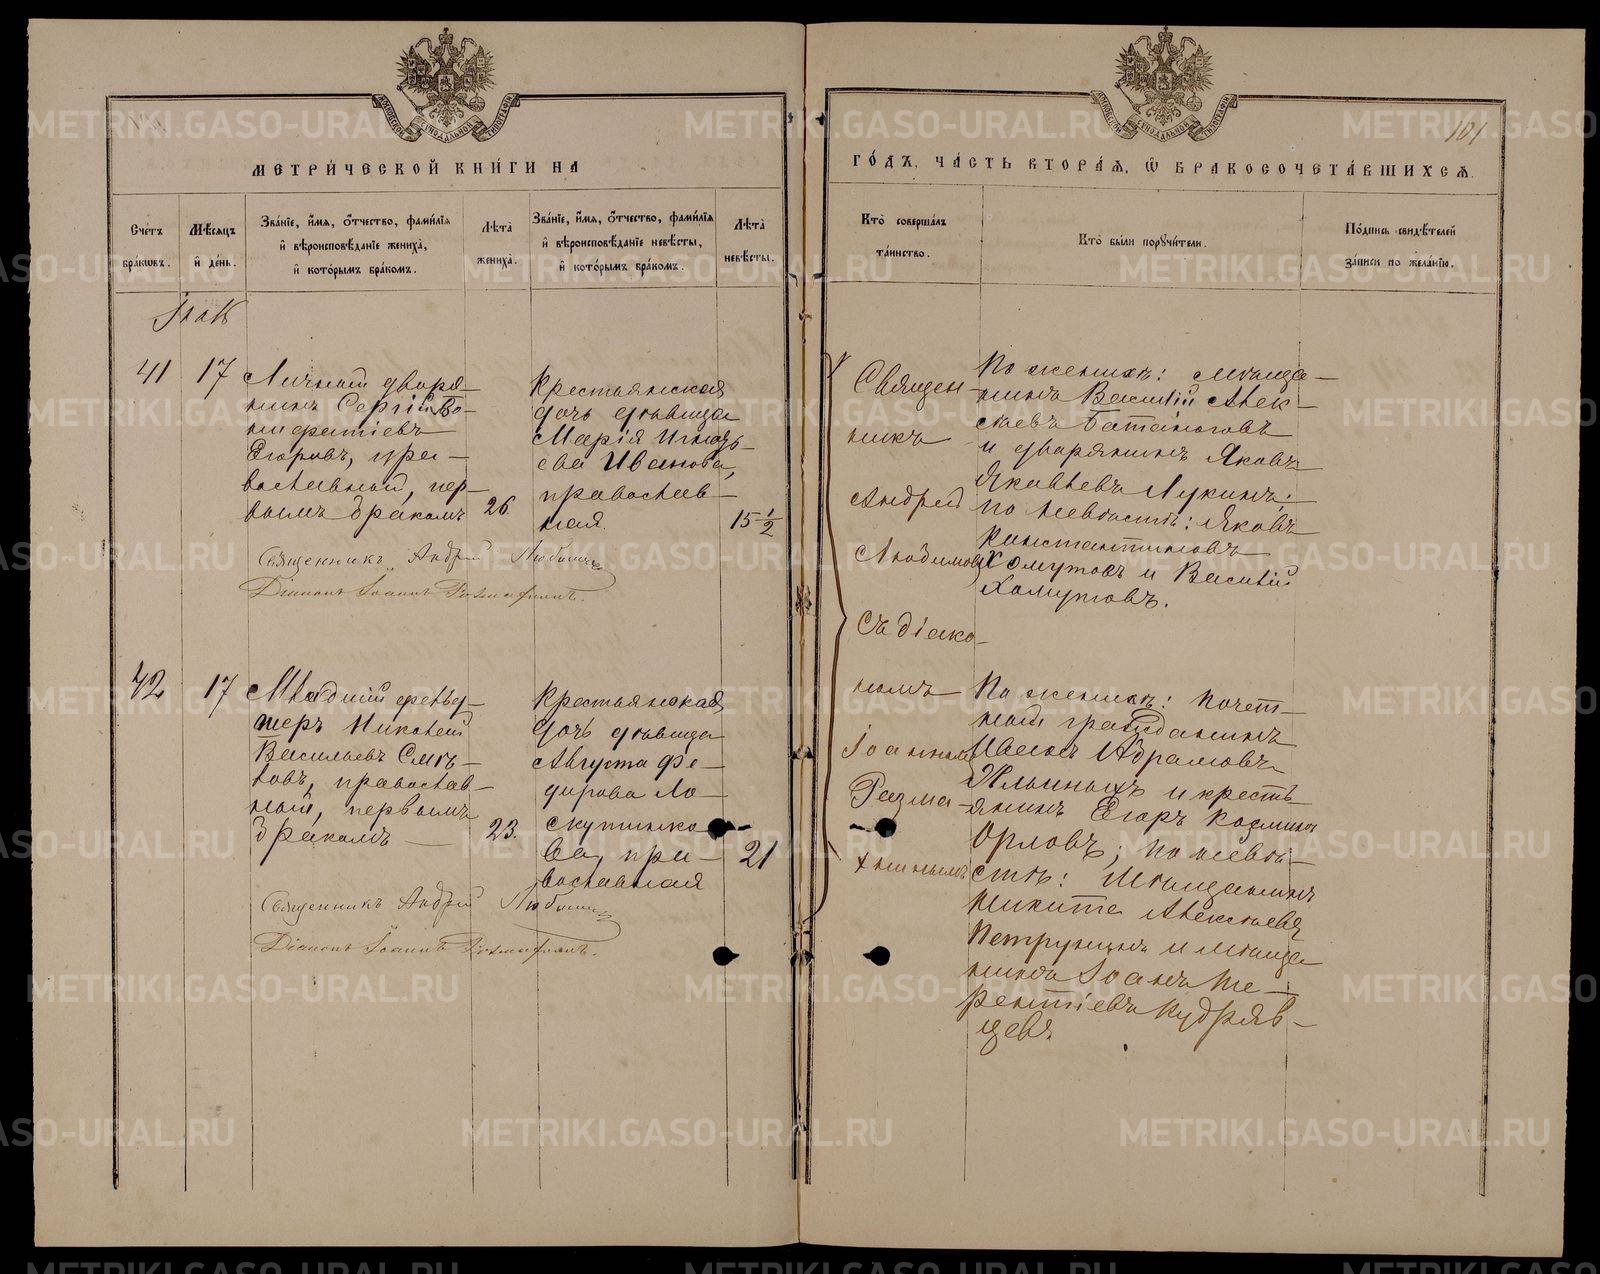 МЕТРИ́ЧЕСКОЙ КНИ́ГИ НА
Сче́тъ бра́кѡвъ.
Мѣ́сяцъ и́ де́нь.
Зва́нїе, и́мѧ, ѻ́тчество, фами́лїѧ и́ вѣроисповѣ́данїе жениха̀, и́ кото́рымъ бра́комъ.
Лѣ́та жениха̀.
Зва́нїе, и́мѧ, ѻ́тчество, фами́лїѧ и́ вѣроисповѣ́данїе невѣ́сты, и́ кото́рымъ бра́комъ.
Лѣ́та невѣ́сты.
41
17
Личный дворя-
нинъ Сергій Во-
нифатіевъ
Егоровъ, пра-
вославный, пер-
вымъ бракомъ
26.
Крестьянская
дочь дѣвица
Марія Игнать-
ева Иванова,
православ-
ная.
15 1/2
Священникъ Андрей Любимовъ
Діаконъ Іоаннъ
42
17
Младшій фельд-
шеръ Николай
Васильевъ Смѣ-
ловъ, православ-
ный, первымъ
бракомъ
23.
Крестьянская
дочь дѣвица
Августа Фе-
дорова Ло-
скутнико
ва, пра-
вославная
21
Священникъ Андрей Любимовъ
Діаконъ Іоаннъ
101
ГО́ДЪ, ЧА́СТЬ ВТОРА́Ѧ, Ѽ БРАКОСОЧЕТА́ВШИХСѦ.
Кто̀ соверша́лъ та́инство.
Кто̀ бы́ли порꙋчи́тели.
По́дпись свидѣ́телей за́писи по жела́нїю.
Священ-
никъ
Андрей
Любимовъ
Съ діако-
номъ
Іоанномъ
По женихѣ: мѣща-
нинъ Василій Алек-
сѣевъ Батаноговъ
и дворянинъ Яковъ
Яковлевъ Лукинъ;
по невѣстѣ: Яковъ
Константиновъ
Хомутовъ и Василій
Хомутовъ.
По женихѣ: почет-
ный гражданинъ
Иванъ Абрамовъ
Ильиныхъ и кресть-
янинъ Егоръ Козминъ
Орловъ; по невѣ-
стѣ: Мѣщанинъ
Никита Алексѣевъ
Петрунинъ и мѣща
нинъ Іоанъ Те-
рентіевъ Кудряв-
цевъ.
METRIKI.GASO-URAL.RU